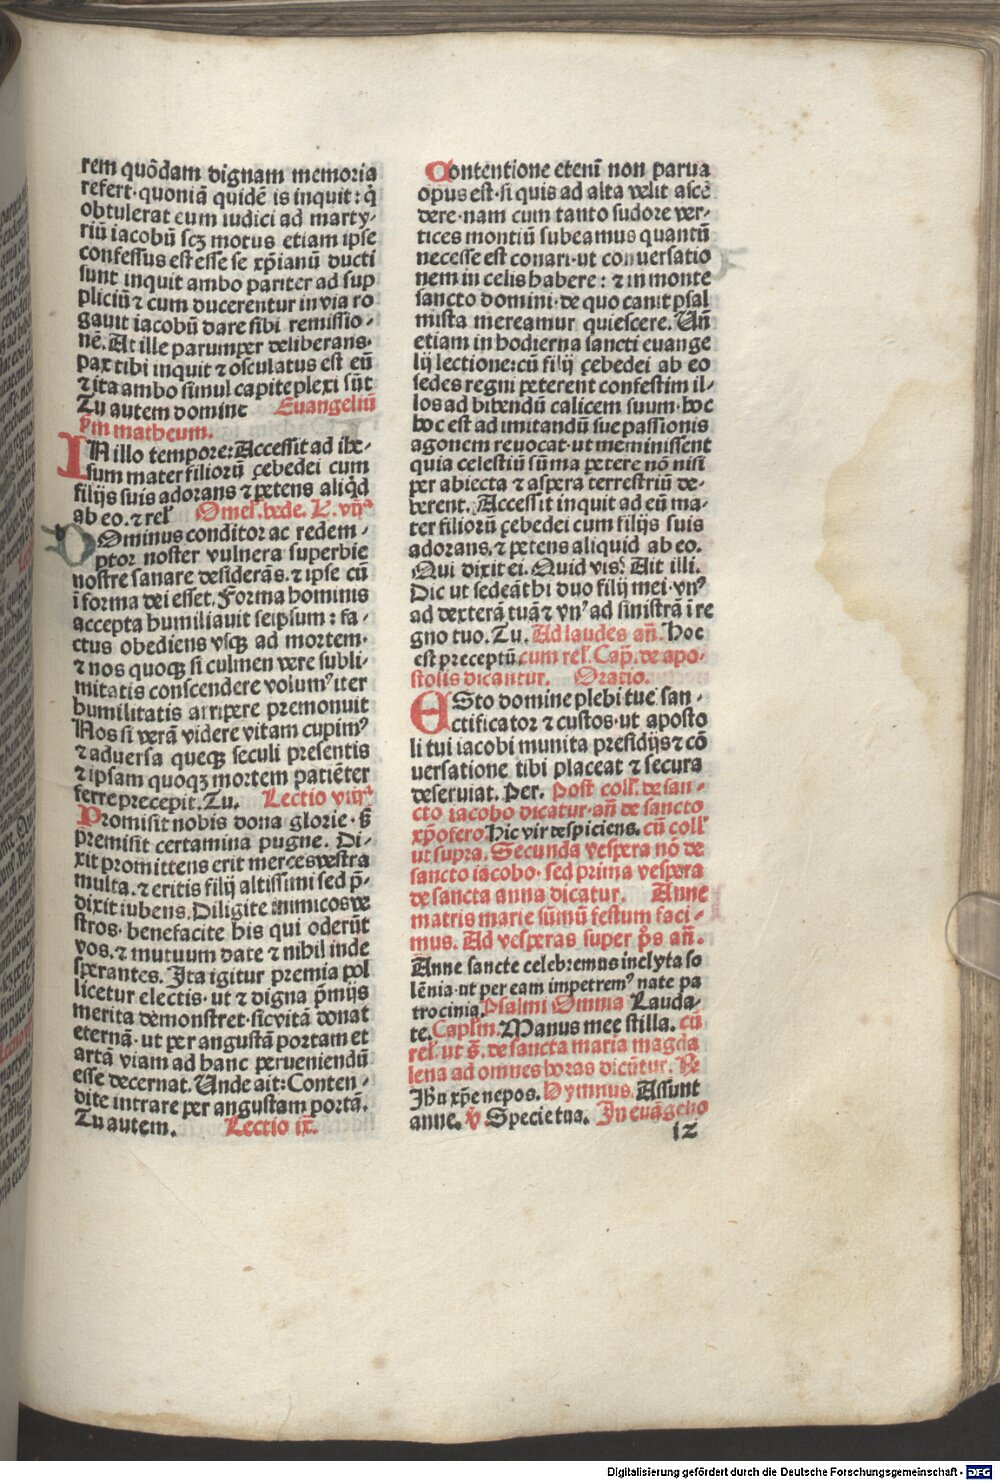 rem quōdam dignam memoria
refert·quoniā quidē is inquit: q̇
obtulerat eum iudici ad marty-
riū iacobū scȝ motus etiam ipse
confessus est esse se xp̄ianū ducti
sunt inquit ambo pariter ad sup
pliciū ⁊ cum ducerentur in via ro
gauit iacobū dare sibi remissio-
nē. At ille parumper deliberans·
pax tibi inquit ⁊ osculatus est eū
⁊ ita ambo simul capite plexi sūt
Tu autem domine Euangeliū
ẜm matheum.
IN illo tempore: Accessit ad ihe-
sum mater filiorū çebedei cum
filijs suis adorans ⁊ petens aliq̇d
ab eo. ⁊ rel̄ Omel̄. bede. L. vijᵃ
DOminus conditor ac redem-
ptor noster vulnera superbie
nostre sanare desiderās. ⁊ ipse cū
ī forma dei esset. Forma hominis
accepta humiliauit seipsum: fa-
ctus obediens vsqꝫ ad mortem·
⁊ nos quoqꝫ si culmen vere subli-
mitatis conscendere volumꝰ iter
humilitatis arripere premonuit
Nos si verā videre vitam cupimꝰ
⁊ aduersa queqꝫ seculi presentis
⁊ ipsam quoqꝫ mortem patiēter
ferre precepit. Tu. Lectio viijᵃ
Promisit nobis dona glorie·ẜ
premisit certamina pugne. Di-
xit promittens erit merces vestra
multa. ⁊ eritis filij altissimi sed p̄-
dixit iubens. Diligite inimicos ve
stros· benefacite his qui oderūt
vos. ⁊ mutuum date ⁊ nihil inde
sperantes. Ita igitur premia pol
licetur electis· ut ⁊ digna p̄mijs
merita demonstret·sic vitā donat
eternā· ut per angustā portam et
artā viam ad hanc perueniendū
esse decernat. Unde ait: Conten-
dite intrare per angustam portā.
Tu autem. Lectio ix.
Contentione etenī non parua
opus est·si quis ad alta velit ascē
dere·nam cum tanto sudore ver-
tices montiū subeamus quantū
necesse est conari·ut conuersatio
nem in celis habere: ⁊ in monte
sancto domini·de quo canit psal
mista mereamur quiescere. Uñ
etiam in hodierna sancti euange
lij lectione: cū filij çebedei ab eo
sedes regni peterent confestim il-
los ad bibendū calicem suum·hoc
hoc est ad imitandū sue passionis
agonem reuocat·ut meminissent
quia celestiū sūma petere nō nisi
per abiecta ⁊ aspera terrestriū de-
berent. Accessit inquit ad eū ma-
ter filiorū çebedei cum filijs suis
adorans. ⁊ petens aliquid ab eo.
Qui dixit ei. Quid vis? Ait illi.
Dic ut sedeāt hi duo filij mei·vnꝰ
ad dexterā tuā ⁊ vnꝰ ad sinistrā ī re
gno tuo. Tu. Ad laudes añ. Hoc
est preceptū. cum rel̄. Cap̄. de apo-
stolis dicantur. Oratio.
ESto domine plebi tue san-
ctificator ⁊ custos·ut aposto
li tui iacobi munita presidijs ⁊ cō
uersatione tibi placeat ⁊ secura
deseruiat. Per. Post coll̄. de san-
cto iacobo dicatur·añ de sancto
xp̄ofero Hic vir despiciens. cū coll̄
ut supra. Secunda vespera nō de
sancto iacobo· sed prima vespera
de sancta anna dicatur. Anne
matris marie sūmū festum faci-
mus. Ad vesperas super p̄s añ.
Anne sancte celebremus inclyta so
lēnia·ut per eam impetremꝰ nate pa
trocinia. Psalmi Omnia Lauda-
te. Capl̄m. Manus mee stilla. cū
rel̄. ut s̄. de sancta maria magda
lena ad omnes horas dicūtur. ℟
Ihu xp̄e nepos. Hymnus. Assunt
anne. ℣. Specie tua. In euāgelio
i2
Digitalisierung gefördert durch die Deutsche Forschungsgemeinschaft - DFG